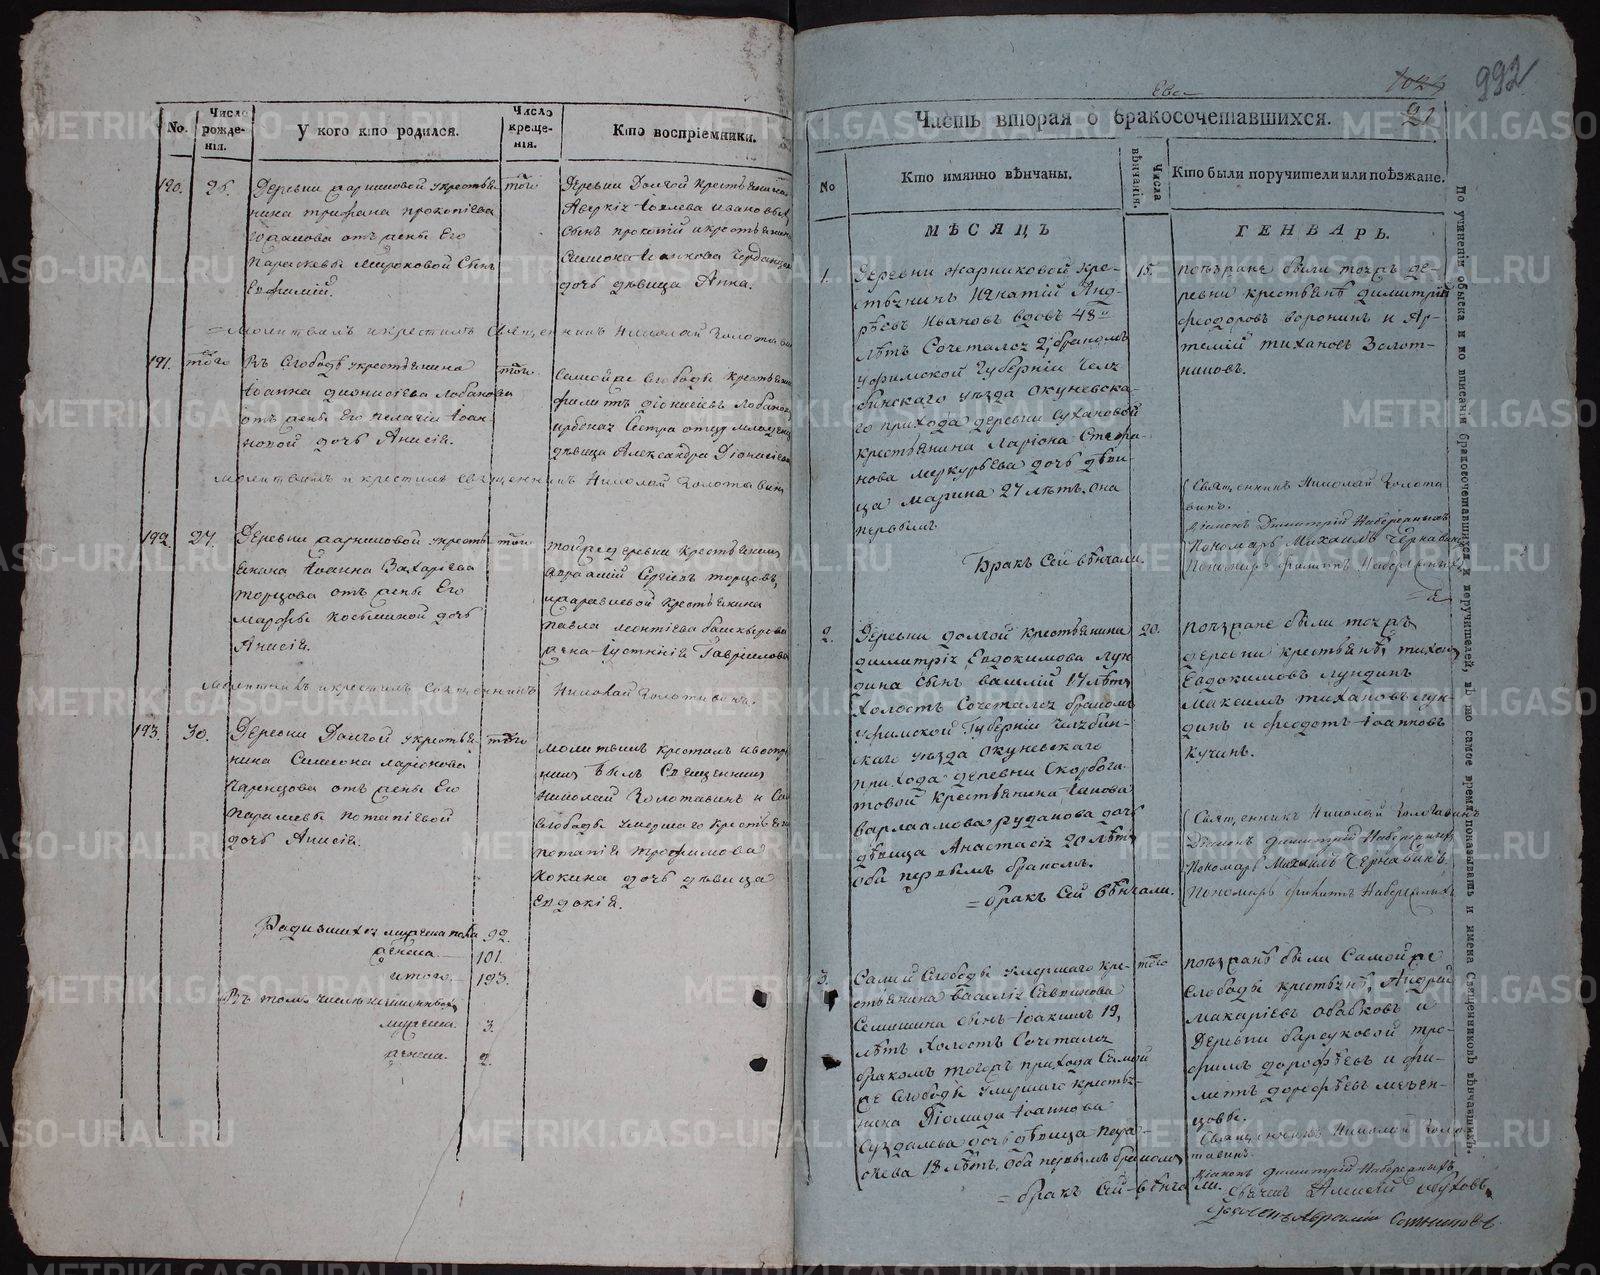 No.
Число рожде-нія.
У кого кто родился.
Число креще-нія.
Кто воспріемники.
190.
26.
Деревни жарниковой укрестья-
нина трифана прокопіева
отъ жены Его
Параскевы Мироновой Сынъ
Евфимій.
того
Деревни Долгой крестьянина
Аверкія Иовлева Иванова
Сынъ прокопій икрестьянина
Симиона
дочь дѣвица Анна.
молитвилъ икрестилъ Священникъ Николай Золотавинъ
191.
того
Въ Слободѣ укрестьянина
Іоанна дионисіева лобанова
отъ жены Его пелагіи Іоан-
новой дочь Анисія.
того
Самойже Слободы крестьянинъ
филипъ діонисіевъ лобановъ
Сестра отцу младенца
дѣвица Александра Діонисіева
молитвилъ и крестилъ Священникъ Николай Золотавинъ
192.
27.
Деревни жарниковой укресть-
янина Іоанна Захаріева
торцова отъ жены Его
Марѳы Косьминой дочь
Анисія.
того
тойже деревни крестьянинъ
авраамій Сергіевъ торцовъ,
крестьянина
павла леонтіева башкырова
жена Іустинія Гавриилова
молитвилъ икрестилъ Священникъ Николай Золотавинъ.
193.
30.
Деревни Долгой укрестья-
нина Симиона ларіонова
отъ жены Его
Параскевы потапіевой
дочь Анисія.
того
молитвилъ крестилъ ивоспр
никъ былъ Священникъ
Николай Золотавинъ и Са
Слободы умершаго крестьянина
потапія трофимова
Кокина дочь дѣвица
Евдокія.
Родившихся мужеска пола 92.
женска 101.
итого 193.
Въ томъ числѣ незаконныхъ
мужеска. 3.
женска. 2.
1024
992
21
Часть вторая о бракосочетавшихся.
No
Кто имянно вѣнчаны.
Числа вѣнчанія.
Кто были поручители или поѣзжане.
МѢСЯЦЪ
ГЕНВАРЬ.
1.
Деревни жарниковой кре-
стьянинъ Игнатій Анд-
рѣевъ Ивановъ вдовъ 48
лѣтъ Сочетался 2мъ бракомъ
уфимской Губерніи Челя
бинскаго уѣзда Окуневска-
го прихода деревни Сухановой
крестьянина Ларіона Стефа-
нова меркурьева дочь дѣви-
ца марина 27 лѣтъ. она
первымъ
Бракъ Сей вѣнчали.
15.
поѣзжане были тоежъ де-
ревни крестьянѣ димитрій
феодоровъ воронинъ и Ар-
темій тихановъ Золот-
никовъ.
Священникъ Николай Золота
винъ.
діаконъ Димитрій Набережныхъ
Пономарь Михаилъ Чернавинъ
Пономарь филипъ Набережныхъ
2.
Деревни долгой крестьянина
димитрія Евдокимова Лун
дина сынъ василій 17 лѣтъ
Холостъ Сочетался бракомъ
уфимской Губерніи Челябин-
скаго уѣзда Окуневскаго
прихода деревни Скорбога
товой крестьянина Іякова
варлаамова рудакова дочь
дѣвица Анастасія 20 лѣтъ
оба первымъ бракомъ.
бракъ Сей вѣнчали.
20.
поѣзжане были тоежъ
деревни крестьянѣ, тиханъ
Евдокимовъ лундинъ
Максимъ тихановъ лун-
динъ и феодотъ Іоанновъ
кучинъ.
Священникъ Николай Золотавинъ
Діаконъ димитрій Набережныхъ
Пономарь Михаилъ Чернавинъ
Пономарь филипъ Набережныхъ
3.
Самой Слободы умершаго кре-
стьянина василія Саввинова
Семишина сынъ Іоакимъ 19,
лѣтъ Холостъ Сочетался
бракомъ тогожъ прихода Самой
же Слободы умершаго крестья-
нина Діомида Іоаннова
Суздалева дочь дѣвица пара-
скева 18 лѣтъ. Оба первымъ бракомъ
бракъ Сей вѣнчали.
того
поѣзжанѣ были Самойже
Слободы крестьянѣ, Андрей
макаріевъ обабковъ и
Деревни барсуковой тро-
фимъ дорофѣевъ и фи-
липъ дорофѣевъ мезен-
цовы.
Священникъ Николай Золо
тавинъ
діаконъ димитрій Набережныхъ
Алексій
По учиненіи обыска и по вписаніи бракосочетавшихся и поручителей, въ то самое время показывать и имена священниковъ вѣнчавшихъ.
METRIKI.GASO-URAL.RU